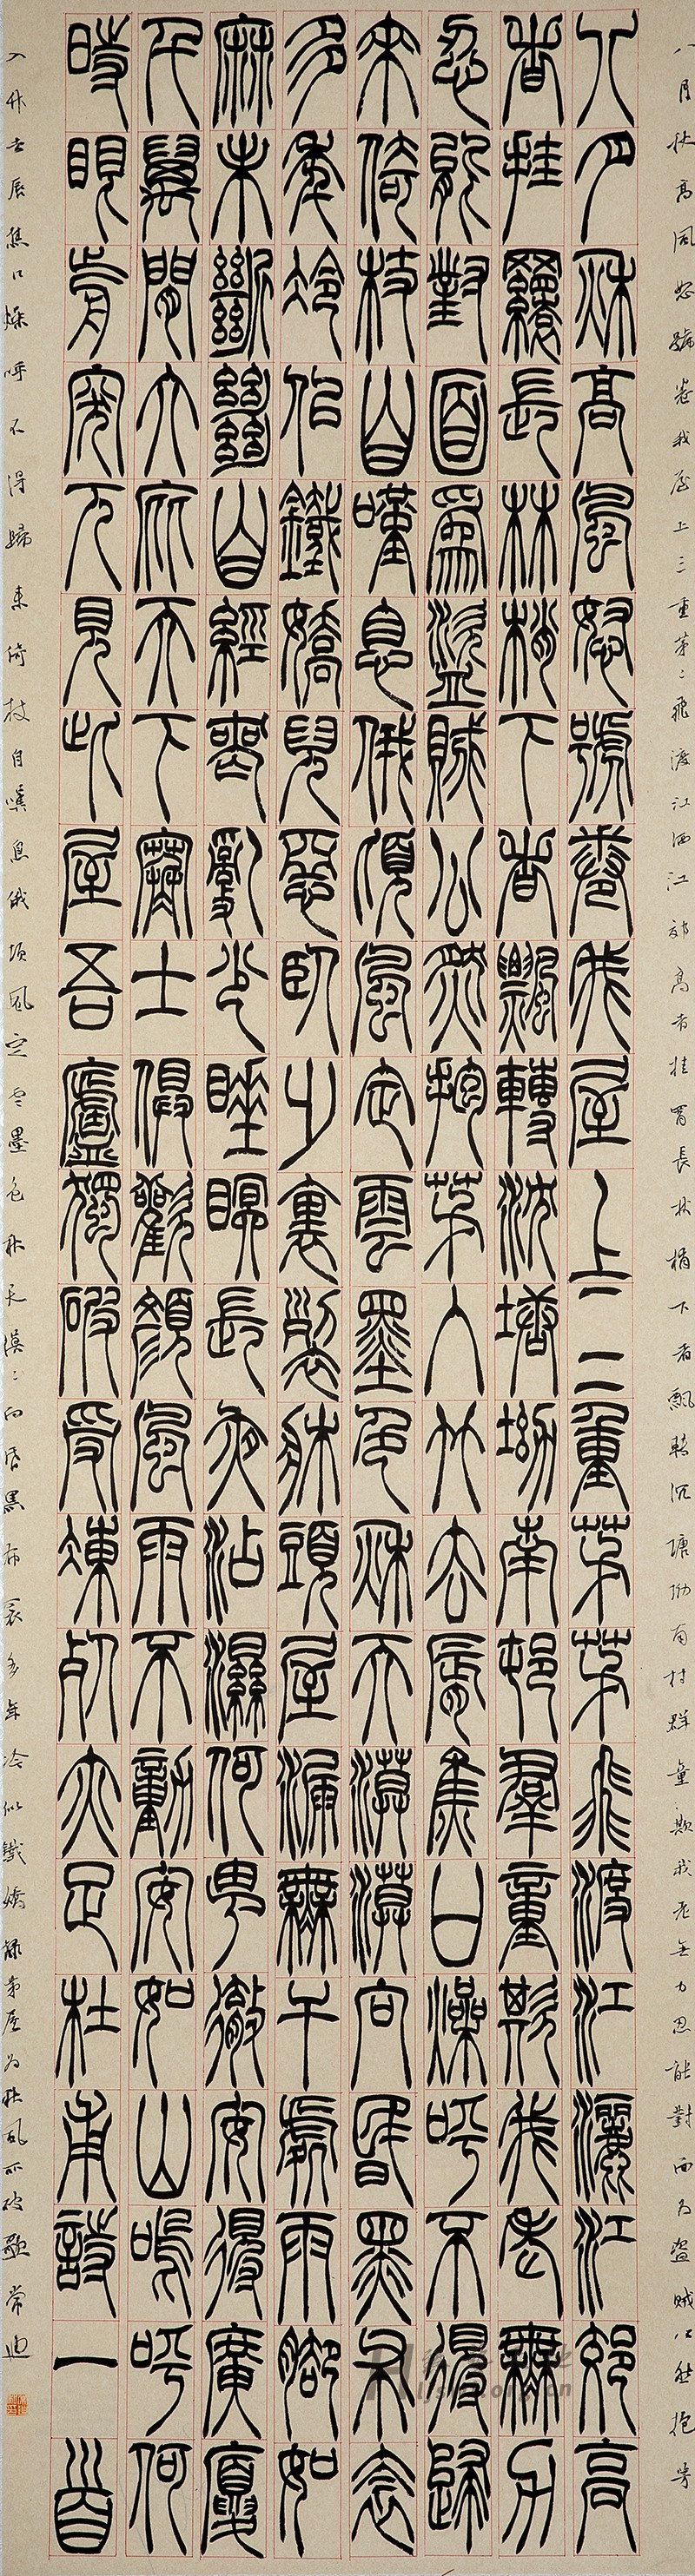 八月秋高風怒號卷我屋上三重茅〻飛渡江洒江郊高者挂罥長林梢下者飄轉沉塘坳南村群童欺我老無力忍能對面为盜賊公然抱茅
八月秋高風怒號卷我屋上三重茅茅飛渡江灑江郊高
者挂罥長林梢下者飄轉沈塘坳南村群童欺我老無力
忍能對面為盜賊公然抱茅入竹去唇焦口燥呼不得歸
來倚杖自嘆息俄頃風定雲墨色秋天漠漠向昏黑布衾
多年冷似鐵嬌兒惡臥踏裏裂牀頭屋漏無干處雨腳如
麻未斷絕自經喪亂少睡眠長夜沾濕何由徹安得廣廈
千萬間大庇天下寒士俱歡顏風雨不動安如山嗚呼何
時眼前突兀見此屋吾廬獨破受凍死亦足杜甫詩一首
入竹去唇焦口燥呼不得歸來倚杖自嘆息俄頃風定雲墨色秋天漠〻向昏黑布衾多年冷似鐵嬌 茅屋为秋風所破歌常迪